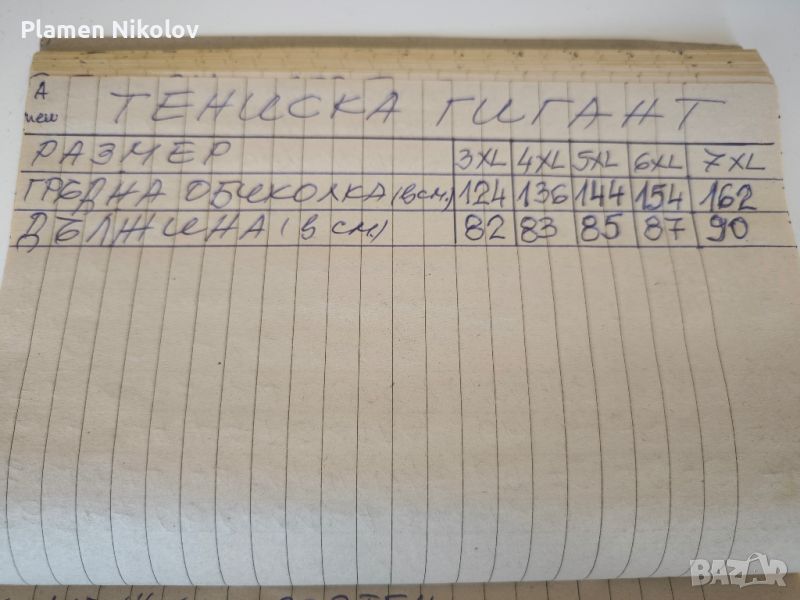 Plamen Nikolov
А
ТЕНИСКА ГИГАНТ
РАЗМЕР 3XL 4XL 5XL 6XL 7XL
ГРЕДНА ОБИКОЛКА (в см.) 124 136 144 154 162
ДЪЛЖИНА (в см.) 82 83 85 87 90
BAZAR